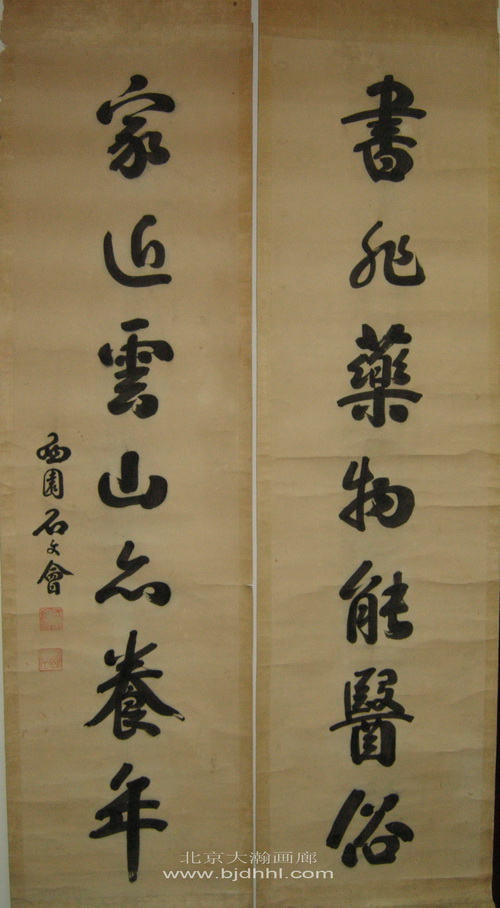 書非藥物能醫俗
家近雲山亦養年
西園石文會
北京大瀚画廊
www.bjdhhl.com